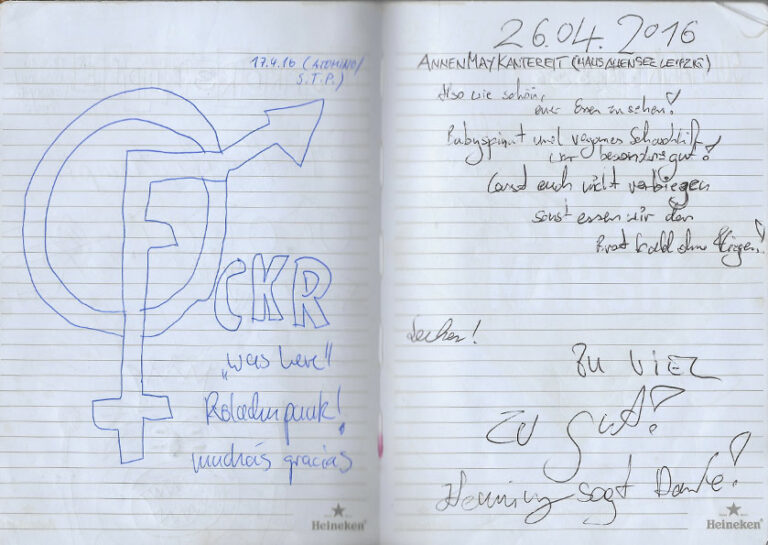 17.4.16 (ATOMINO/
S.T.P.)
F
CKR
„was here"
muchás gracias
Heineken
26.04.2016
ANNENMAYKANTEREIT (HAUS AUENSEE LEIPZIG)
Also wie schön,
euer Essen zu sehen!
Babyspinat und veganes Schaschlik
war besonders gut!
Lasst euch nicht verbiegen
sonst essen wir den
ohne Fliegen!
Lecker!
ZU VIEL
ZU gut!
Henning sagt Danke!
Heineken